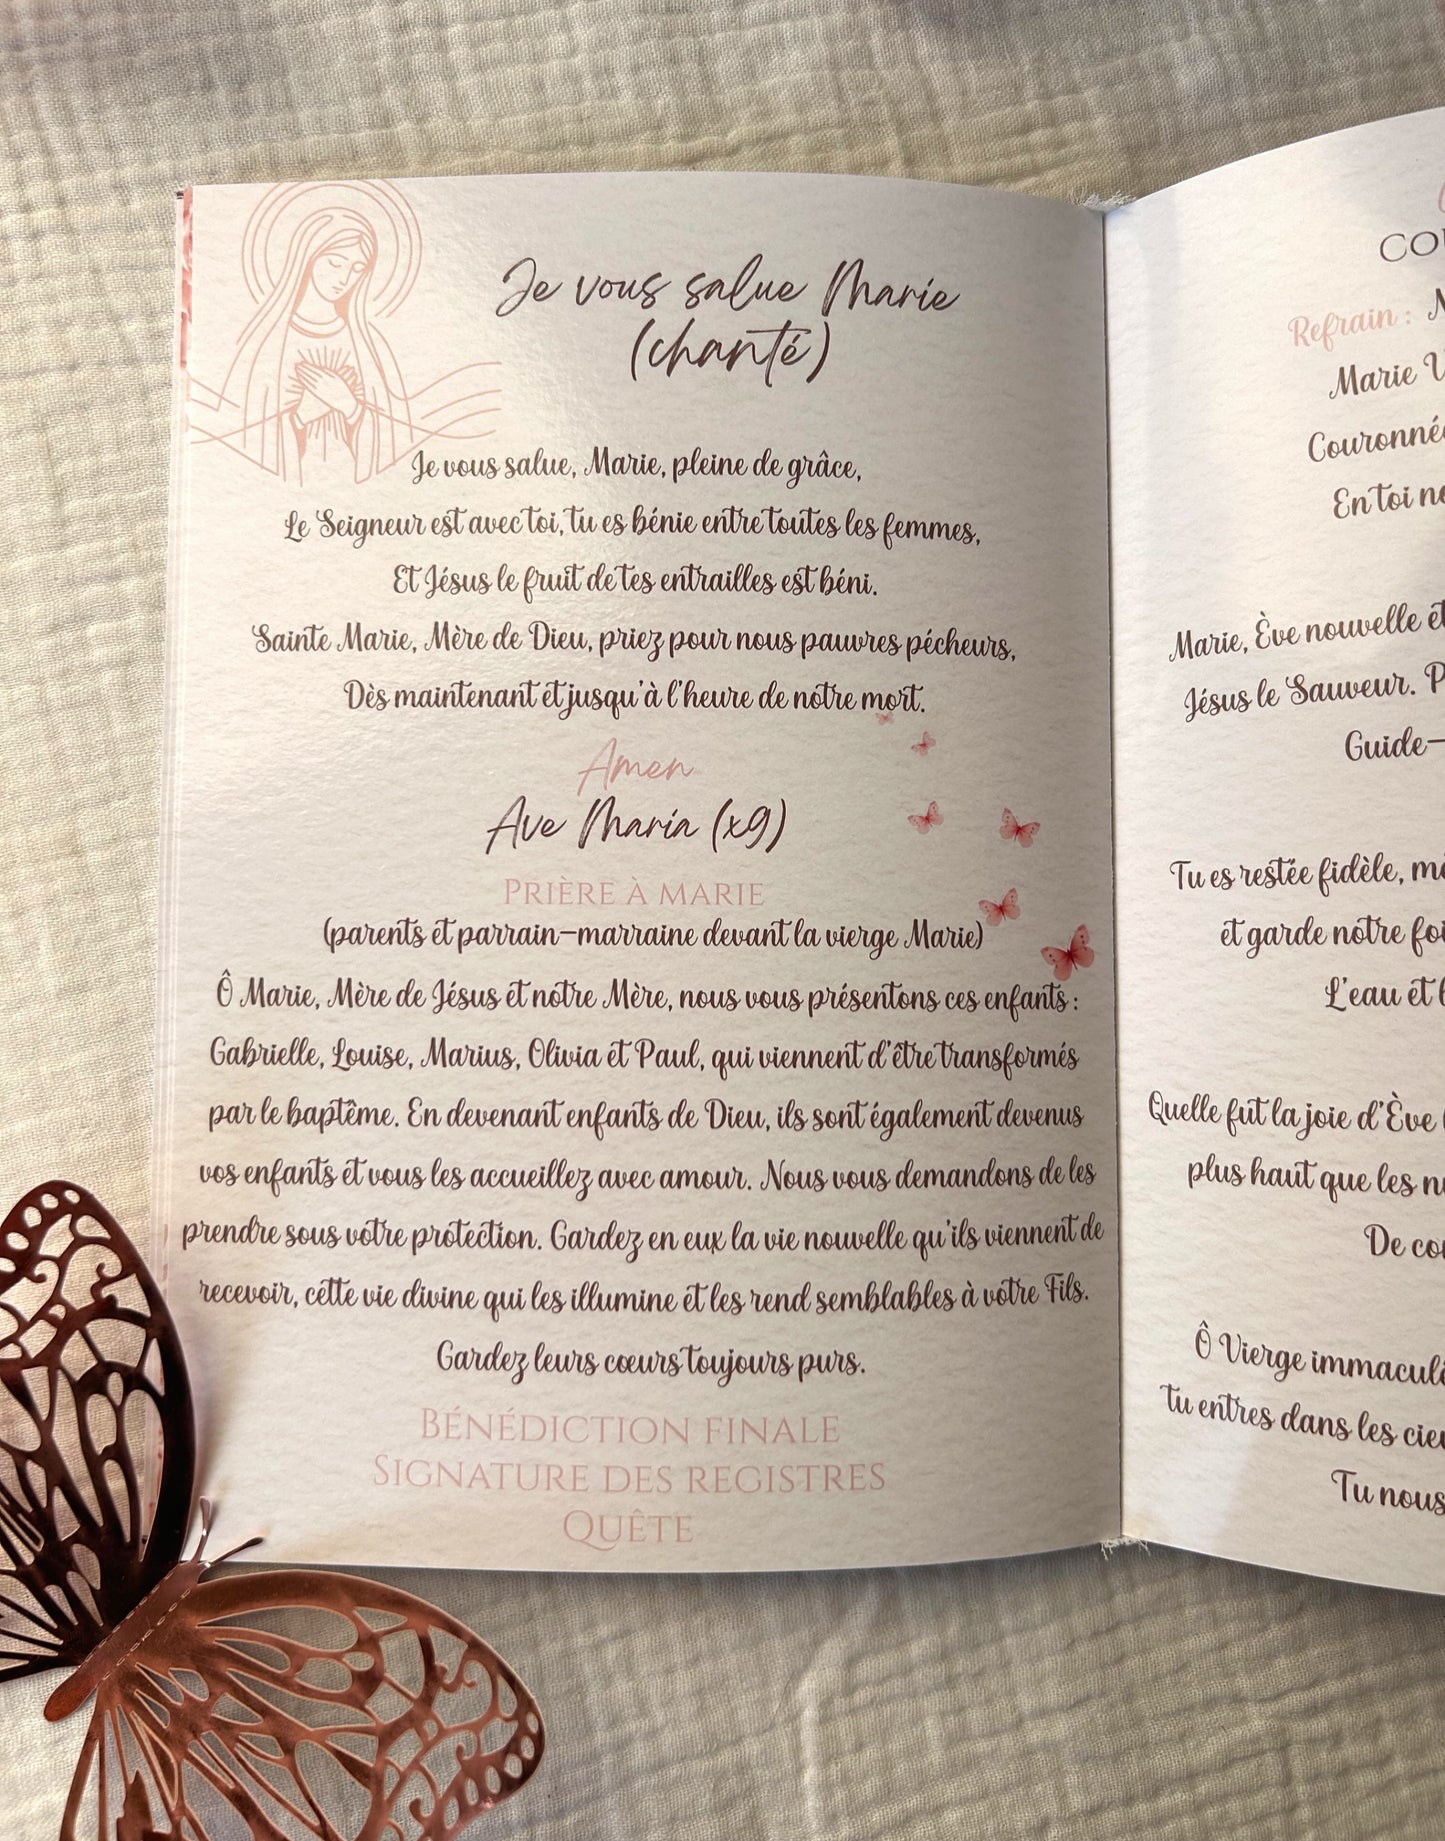 Je vous salue Marie
(chanté)
Je vous salue, Marie, pleine de grâce,
Le Seigneur est avec toi, tu es bénie entre toutes les femmes,
Et Jésus le fruit de tes entrailles est béni.
Sainte Marie, Mère de Dieu, priez pour nous pauvres pécheurs,
Dès maintenant et jusqu'à l'heure de notre mort.
Amen
Ave Maria (x9)
Prière à Marie
(parents et parrain-marraine devant la vierge Marie)
Ô Marie, Mère de Jésus et notre Mère, nous vous présentons ces enfants :
Gabrielle, Louise, Marius, Olivia et Paul, qui viennent d'être transformés
par le baptême. En devenant enfants de Dieu, ils sont également devenus
vos enfants et vous les accueillez avec amour. Nous vous demandons de les
prendre sous votre protection. Gardez en eux la vie nouvelle qu'ils viennent de
recevoir, cette vie divine qui les illumine et les rend semblables à votre Fils.
Gardez leurs cœurs toujours purs.
Bénédiction finale
Signature des registres
Quête
Refrain :
Marie
Couronné
En toi
Marie, Ève nouvelle et
Jésus le Sauveur.
Guide-
Tu es restée fidèle,
et garde notre foi
L'eau et
Quelle fut la joie d'Ève
plus haut que les
De
Ô Vierge immaculé
tu entres dans les
Tu nous